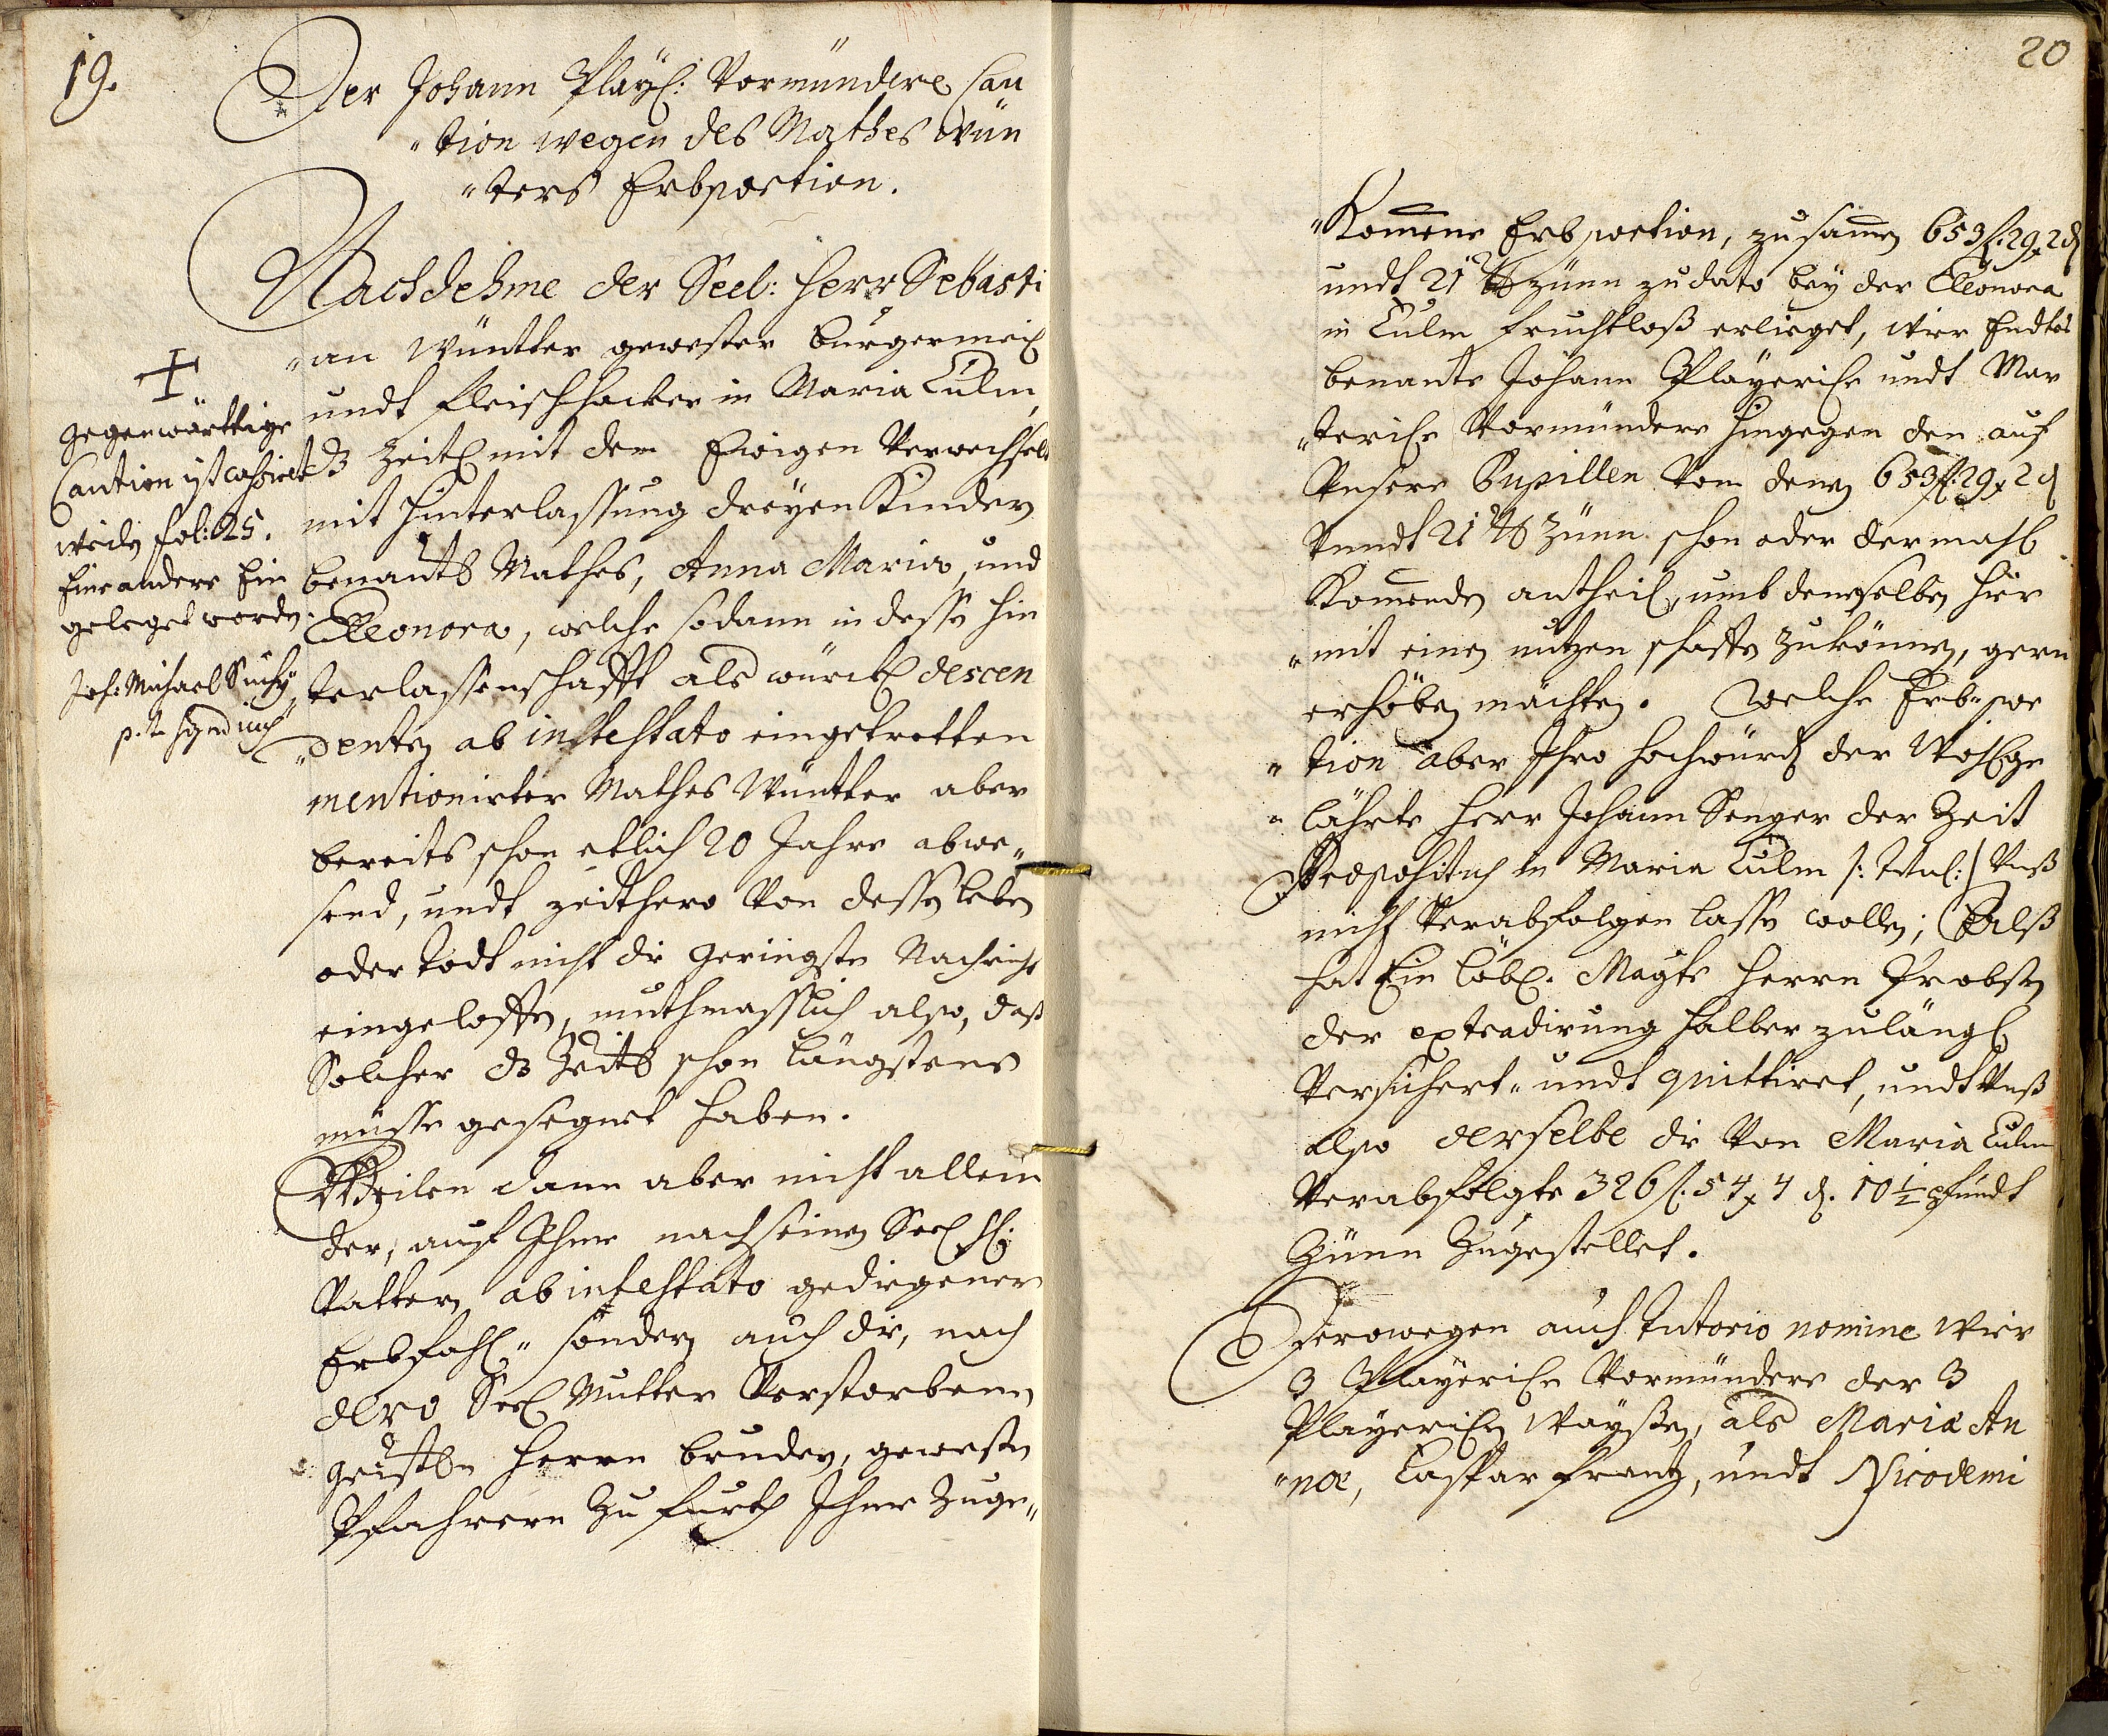 19.
Der Johann Playl: Vormündere Cau
"tion wegen des Mathes Wün
"ters Erbportion.
Nachdehme der Seel: Herr Sebasti
"an Wüntter gewester burgermeis
undt Fleischhacker in Maria Culm,
d3 Zeitl mit dem Ewigen Verwechselt
mit Hinterlassung dreyen Kindern
benants Mathes, Anna Maria, und
Eleonora, welche sodann in dessen Hin
terlassenschafft als würckl descen
"denten ab intestato eingetretten
mentionirter Mathes Wüntter aber
bereits schon etlich 20 Jahre abwe„
send, undt zeithero Von dessen leben
oder todt nicht die geringste Nachricht
eingeloffen, muthmasslich also, daß
Solcher d3 Zeitl schon längstens
müsse gesegnet haben.
Weilen dann aber nicht allein
der, auf Ihme nach seinen Seel H:
Vattern ab intestato gediegener
Erbfahl„ sondern auch die, nach
dero Seel Mutter Verstorbenen
geistln Herrn brudern, gewesten
Pfahrern Zu Furth Ihme Zuge„
+
Gegenwärttige
Caution ist cassiert
weiln fol: 25.
Eine andere Ein
geleget worden.
Jos: Michael Suchy
p.t. Syndicus
20
"Komene Erbportion, zusamen 653 f. 29 x 2 d
undt 21 ℔ zünn zu dato bey der Eleonora
in Culm fruchtloß erlieget, wir Endtes
benante Johann Playerische undt Mar
"terische Vormündere hingegen den auf
Unsere Pupillen Von denen 653 f: 29 x 2 d
Undt 21 ℔ Zünn schon oder dermahl
Komenden antheil, umb demselben hier
"mit einen nutzen schaffen zu können, gern
erhöben möchten. Welche Erb-por
"tion aber Ihro Hochwürd der Wohlge
"lährte Herr Johann Senger der Zeit
Praepositus in Maria Culm /: Titul: / Unß
nicht Verabfolgen lassen wollen; Alß
hat Ein löbl. Magte Herrn Probsten
der extradirung halber zulängl
Versichert„ undt quittiret, undt Unß
also derselbe die Von Maria Culm
Verabfolgte 326 f. 54 x 4 d. 10 1/2 pfundt
Zünn Zugestellet.
Derowegen auch tutorio nomine Wier
3 Playerische Vormündere der 3
Playerischen Waysen, als Mariæ An
"næ, Caspar Frantz, undt Nicodemi